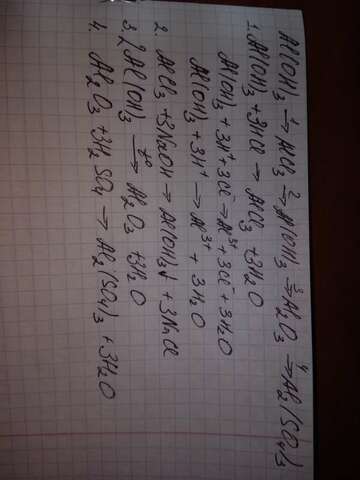 Al(OH)3 →¹ AlCl3 →² Al(OH)3 →³ Al2O3 →⁴ Al2(SO4)3
1. Al(OH)3 + 3HCl → AlCl3 + 3H2O
Al(OH)3 + 3H⁺ + 3Cl⁻ → Al³⁺ + 3Cl⁻ + 3H2O
Al(OH)3 + 3H⁺ → Al³⁺ + 3H2O
2. AlCl3 + 3NaOH → Al(OH)3↓ + 3NaCl
3. 2Al(OH)3 →t° Al2O3 + 3H2O
4. Al2O3 + 3H2SO4 → Al2(SO4)3 + 3H2O